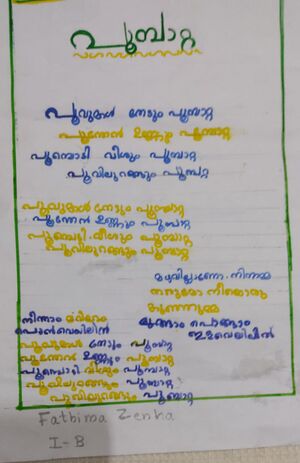 പൂമ്പാറ്റ
പൂവുകൾ തേടും പൂമ്പാറ്റ
പൂന്തേൻ ഉണ്ണും പൂമ്പാറ്റ
പൂമ്പൊടി വീശും പൂമ്പാറ്റ
പൂവിലുറങ്ങും പൂമ്പറ്റ
പൂവുകൾ തേടും പൂമ്പാറ്റ
പൂന്തേൻ ഉണ്ണും പൂമ്പാറ്റ
പൂമ്പൊടി വീശും പൂമ്പാറ്റ
പൂവിലുറങ്ങും പൂമ്പാറ്റ
മഴവില്ലാണോ നിന്നമ്മ
തരുമോ നീയൊരു
മുങ്ങാം പൊങ്ങാം
ഇളവെയിലിൽ
നിന്നോം
പൊൻവെയിലിൽ
പൂവുകൾ തേടും പൂമ്പാറ്റ
പൂന്തേൻ ഉണ്ണും പൂമ്പാറ്റ
പൂമ്പൊടി വീശും പൂമ്പാറ്റ
പൂവിലുറങ്ങും പൂമ്പാറ്റ
പൂവിലുറങ്ങും പൂമ്പാറ്റ
Fathima Zenha
I-B